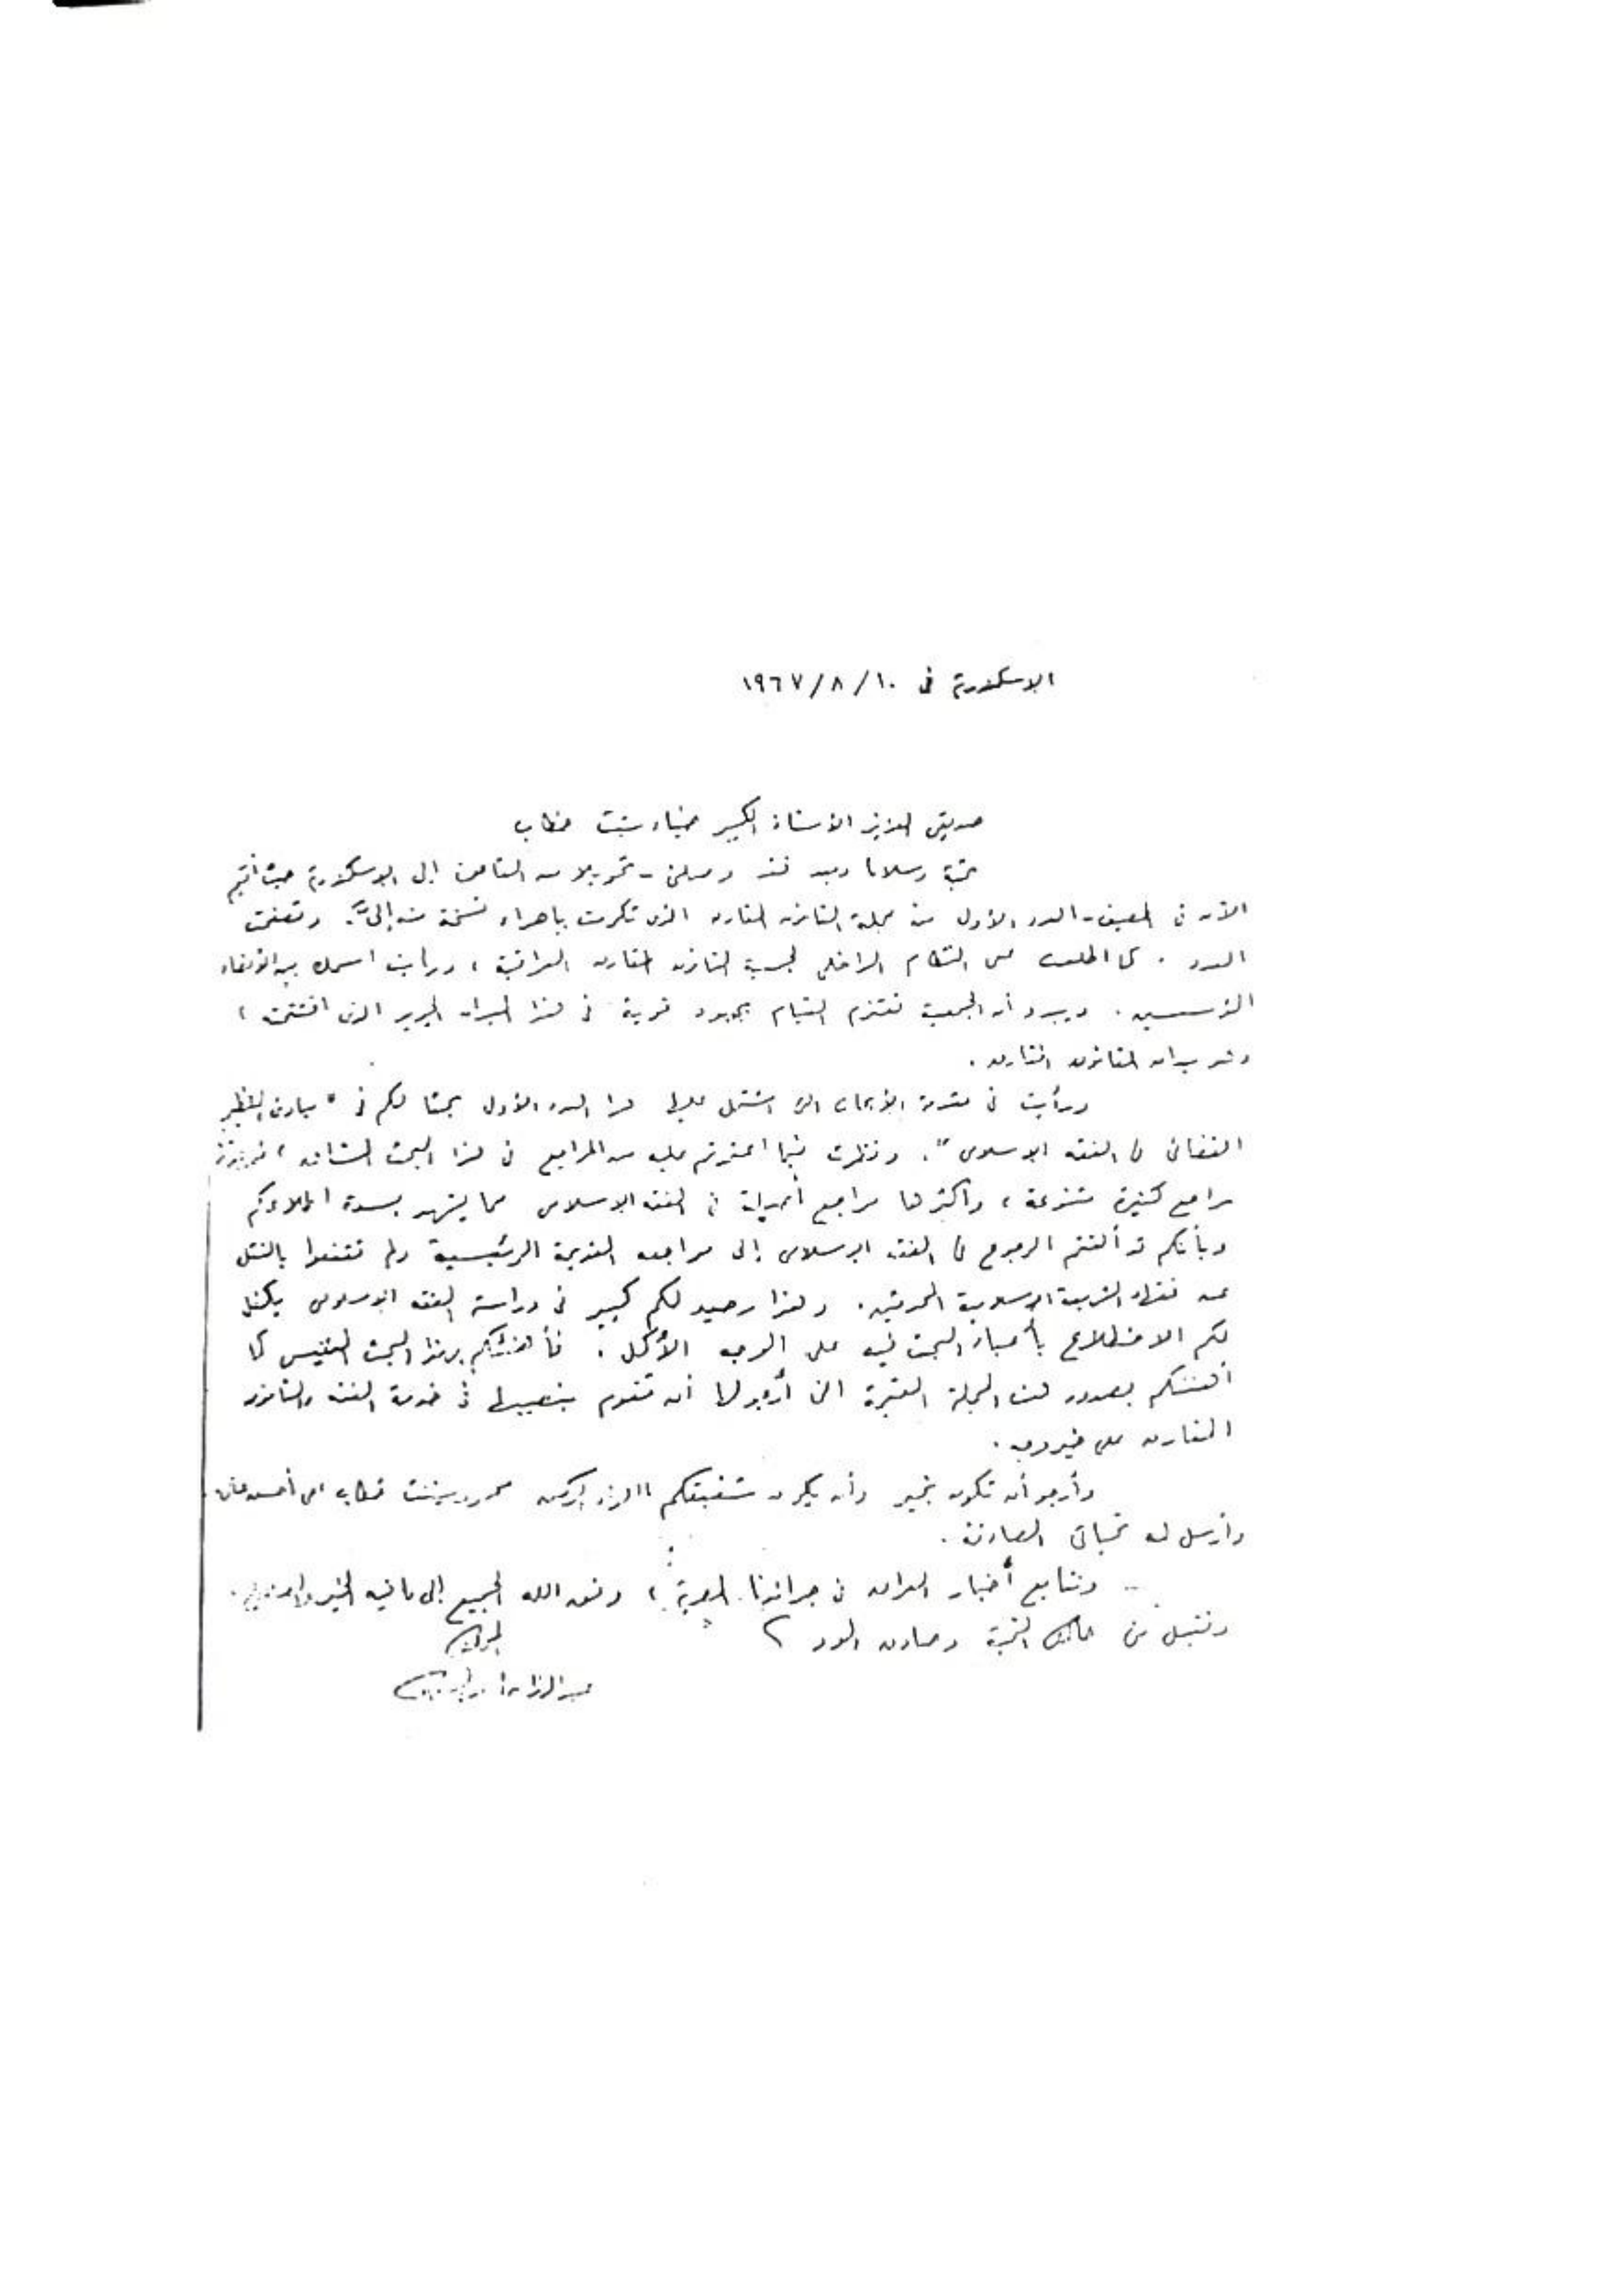 الاسكندرية فى ١٩٦٧/٨/١٠
صديقى العزيز الأستاذ الكبير ضياء شيت خطاب
تحية وسلاما وبعد فقد وصلنى - تحويلا من القاهرة إلى الاسكندرية حيث أقيم
الآن فى المصيف - العدد الأول من مجلة القانون المقارن الذى تكرمت باهداء نسخة منه إلىّ. وتصفحت
العدد . كما اطلعت على النظام الداخلى لجمعية القانون المقارن العراقية ، ورأيت اسمك بين الأعضاء
المؤسسين . ويبدو أن الجمعية تعتزم القيام بجهود قوية فى هذا الميدان الجديد الذى افتتحته ،
وهو ميدان القانون المقارن .
ورأيت فى مقدمة الأبحاث التى اشتمل عليها هذا العدد الأول بحثا لكم فى " مبادئ التنظيم
القضائى فى الفقه الاسلامى ". ونظرت فيما اعتمدتم عليه من المراجع فى هذا البحث الشائق ،
مراجع كثيرة متنوعة ، وأكثرها مراجع أصيلة فى الفقه الاسلامى مما يشهد بسعة اطلاعكم
وبأنكم قد ألفتم الرجوع فى الفقه الاسلامى إلى مراجعه القديمة الرئيسية ولم تقنعوا بالنقل
عن فقهاء الشريعة الاسلامية المحدثين . وهذا رصيد لكم كبير فى دراسة الفقه الاسلامى يكفل
لكم الاضطلاع بأعباء البحث فيه على الوجه الأكمل . فأهنئكم بهذا البحث النفيس كما
أهنئكم بصدور هذه المجلة القيمة التى أرجو لها أن تقوم بنصيبها فى خدمة الفقه والقانون
المقارن على خير وجه .
وأرجو أن تكون بخير وأن يكون شقيقكم اللواء الركن محمود شيت خطاب فى أحسن حال .
وأرسل له تحياتى الصادقة .
ونتابع أخبار العراق فى جرائدنا المصرية ، وفق الله الجميع إلى ما فيه الخير
وتقبل منى خالص التحية وصادق الود
المخلص
عبد الرزاق أحمد السنهورى